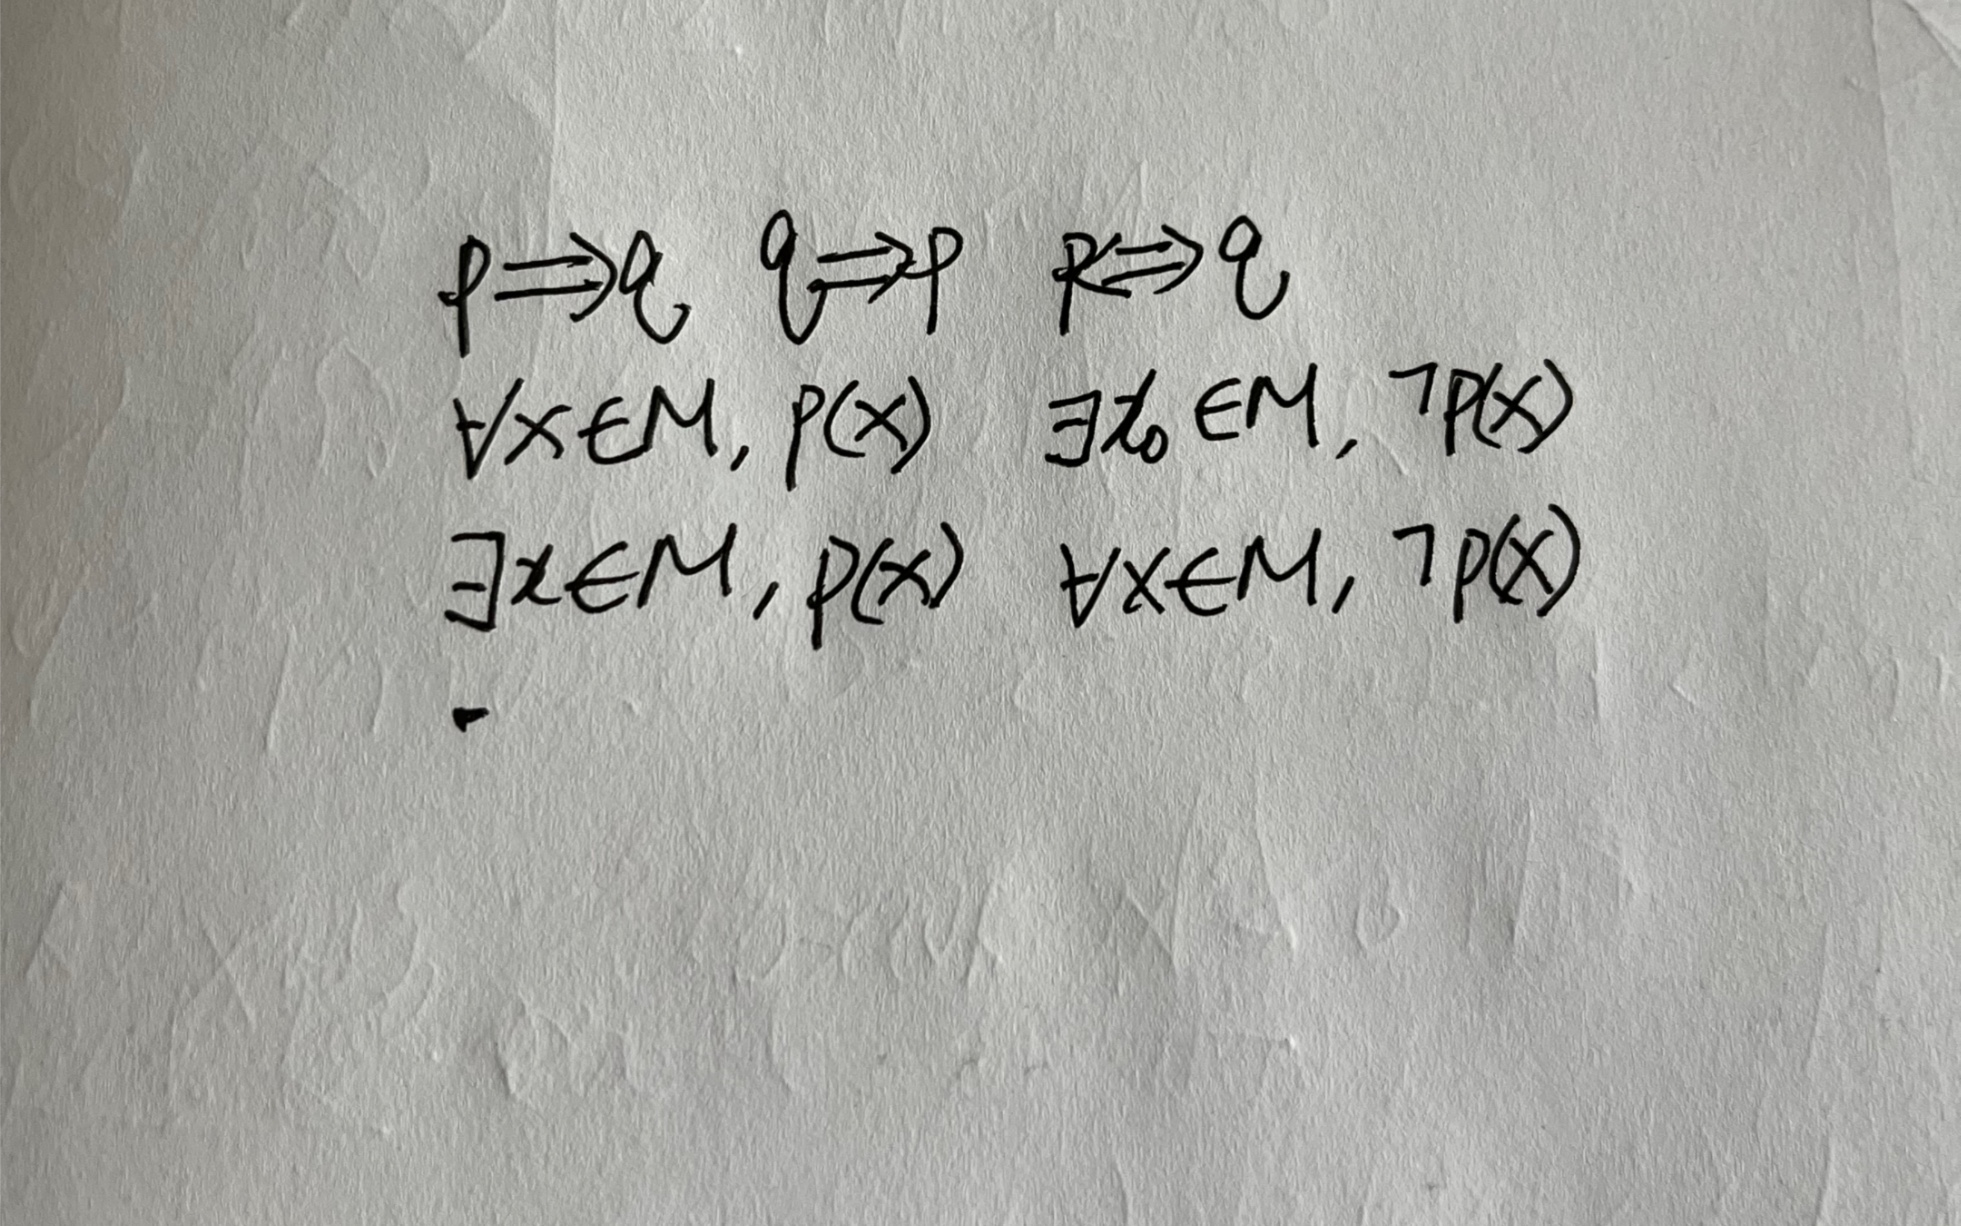 p⇒q q⇒p p⇔q
∀x∈M, p(x) ∃x₀∈M, ¬p(x)
∃x∈M, p(x) ∀x∈M, ¬p(x)